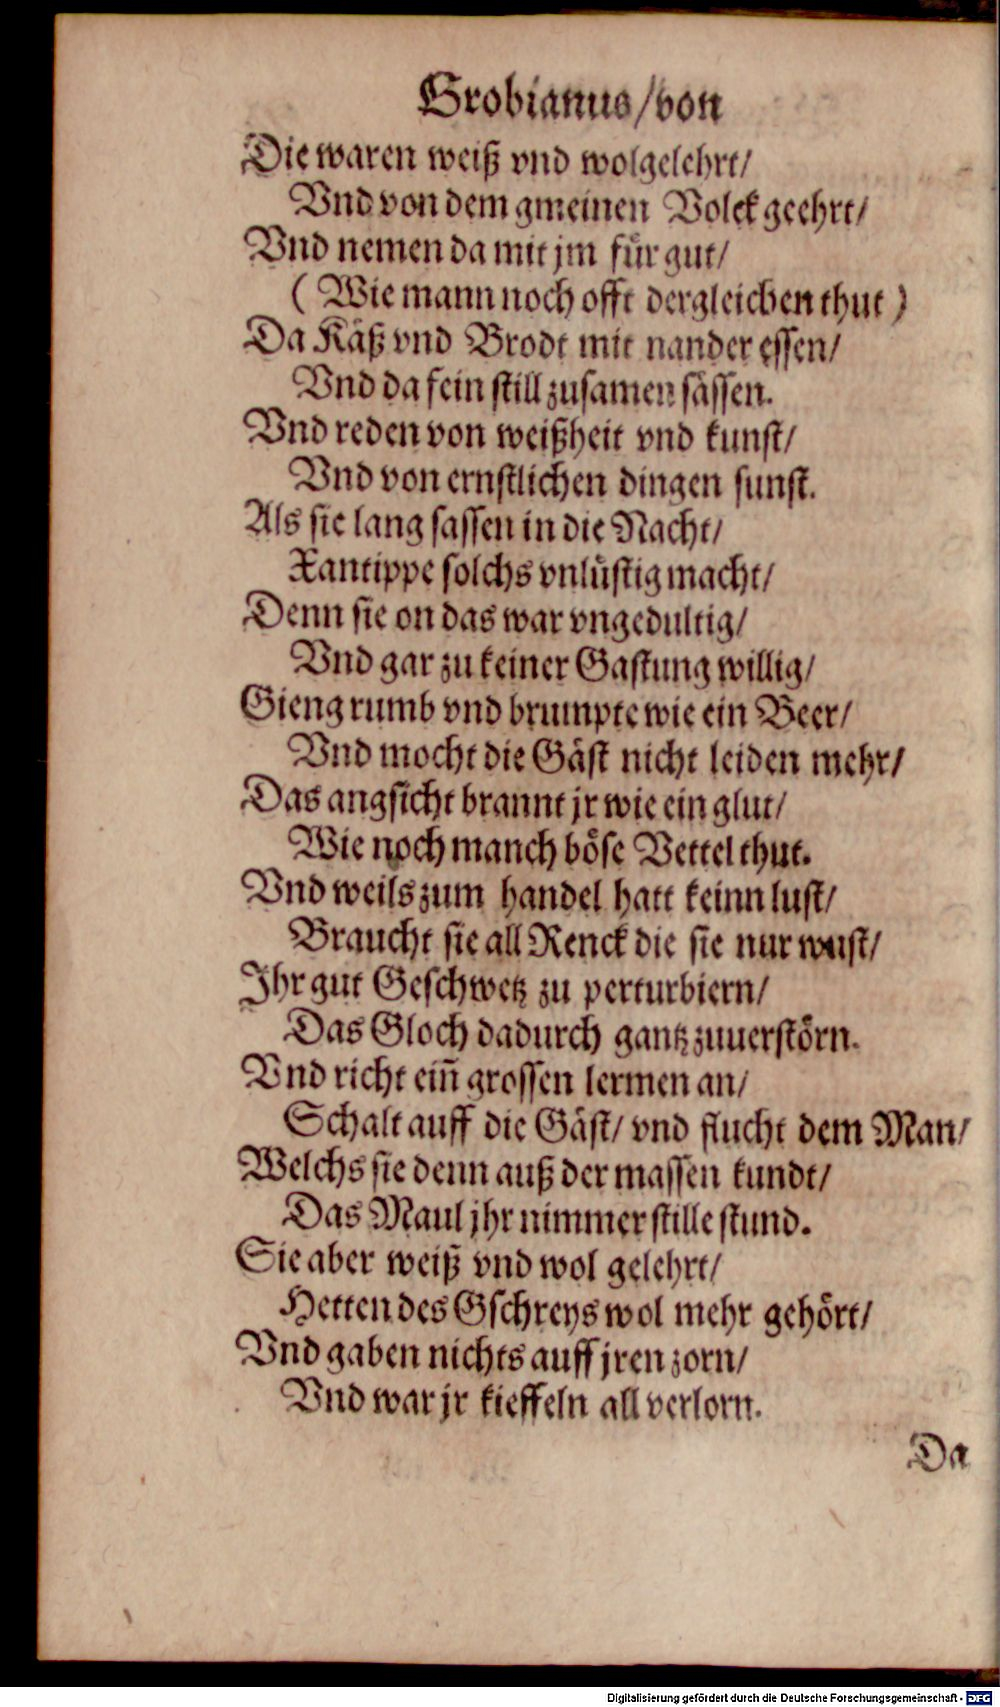 Grobianus/von
Die waren weiß vnd wolgelehrt/
Vnd von dem gmeinen Volck geehrt/
Vnd nemen da mit jm für gut/
( Wie mann noch offt dergleichen thut )
Da Käß vnd Brodt mit nander essen/
Vnd da fein still zusamen sässen.
Vnd reden von weißheit vnd kunst/
Vnd von ernstlichen dingen sunst.
Als sie lang sassen in die Nacht/
Xantippe solchs vnlüstig macht/
Denn sie on das war vngedultig/
Vnd gar zu keiner Gastung willig/
Gieng rumb vnd brumpte wie ein Beer/
Vnd mocht die Gäst nicht leiden mehr/
Das angsicht brannt jr wie ein glut/
Wie noch manch böse Vettel thut.
Vnd weils zum handel hatt keinn lust/
Braucht sie all Renck die sie nur wust/
Ihr gut Geschwetz zu perturbiern/
Das Gloch dadurch gantz zuuerstörn.
Vnd richt ein̄ grossen lermen an/
Schalt auff die Gäst/ vnd flucht dem Man/
Welchs sie denn auß der massen kundt/
Das Maul jhr nimmer stille stund.
Sie aber weiß vnd wol gelehrt/
Hetten des Gschreys wol mehr gehört/
Vnd gaben nichts auff jren zorn/
Vnd war jr kieffeln all verlorn.
Da
Digitalisierung gefördert durch die Deutsche Forschungsgemeinschaft - DFG